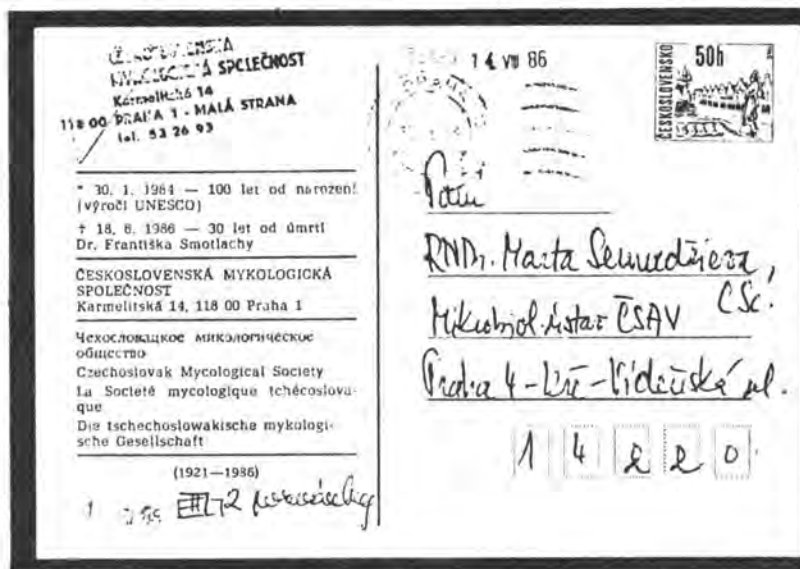 ČESKOSLOVENSKÁ
MYKOLOGICKÁ SPOLEČNOST
Karmelitská 14
118 00 PRAHA 1 - MALÁ STRANA
tel. 53 26 93
* 30. 1. 1984 — 100 let od narození
(výročí UNESCO)
† 18. 6. 1986 — 30 let od úmrtí
Dr. Františka Smotlachy
ČESKOSLOVENSKÁ MYKOLOGICKÁ
SPOLEČNOST
Karmelitská 14, 118 00 Praha 1
Чехословацкое микологическое
общество
Czechoslovak Mycological Society
La Societé mycologique tchécoslova-
que
Die tschechoslowakische mykologi-
sche Gesellschaft
(1921—1986)
14 VIII 86
ČESKOSLOVENSKO
50h
RNDr. Marta Semerdžieva,
CSc.
Mikrobiol. ústav ČSAV
Praha 4 - Krč - Vídeňská ul.
14220